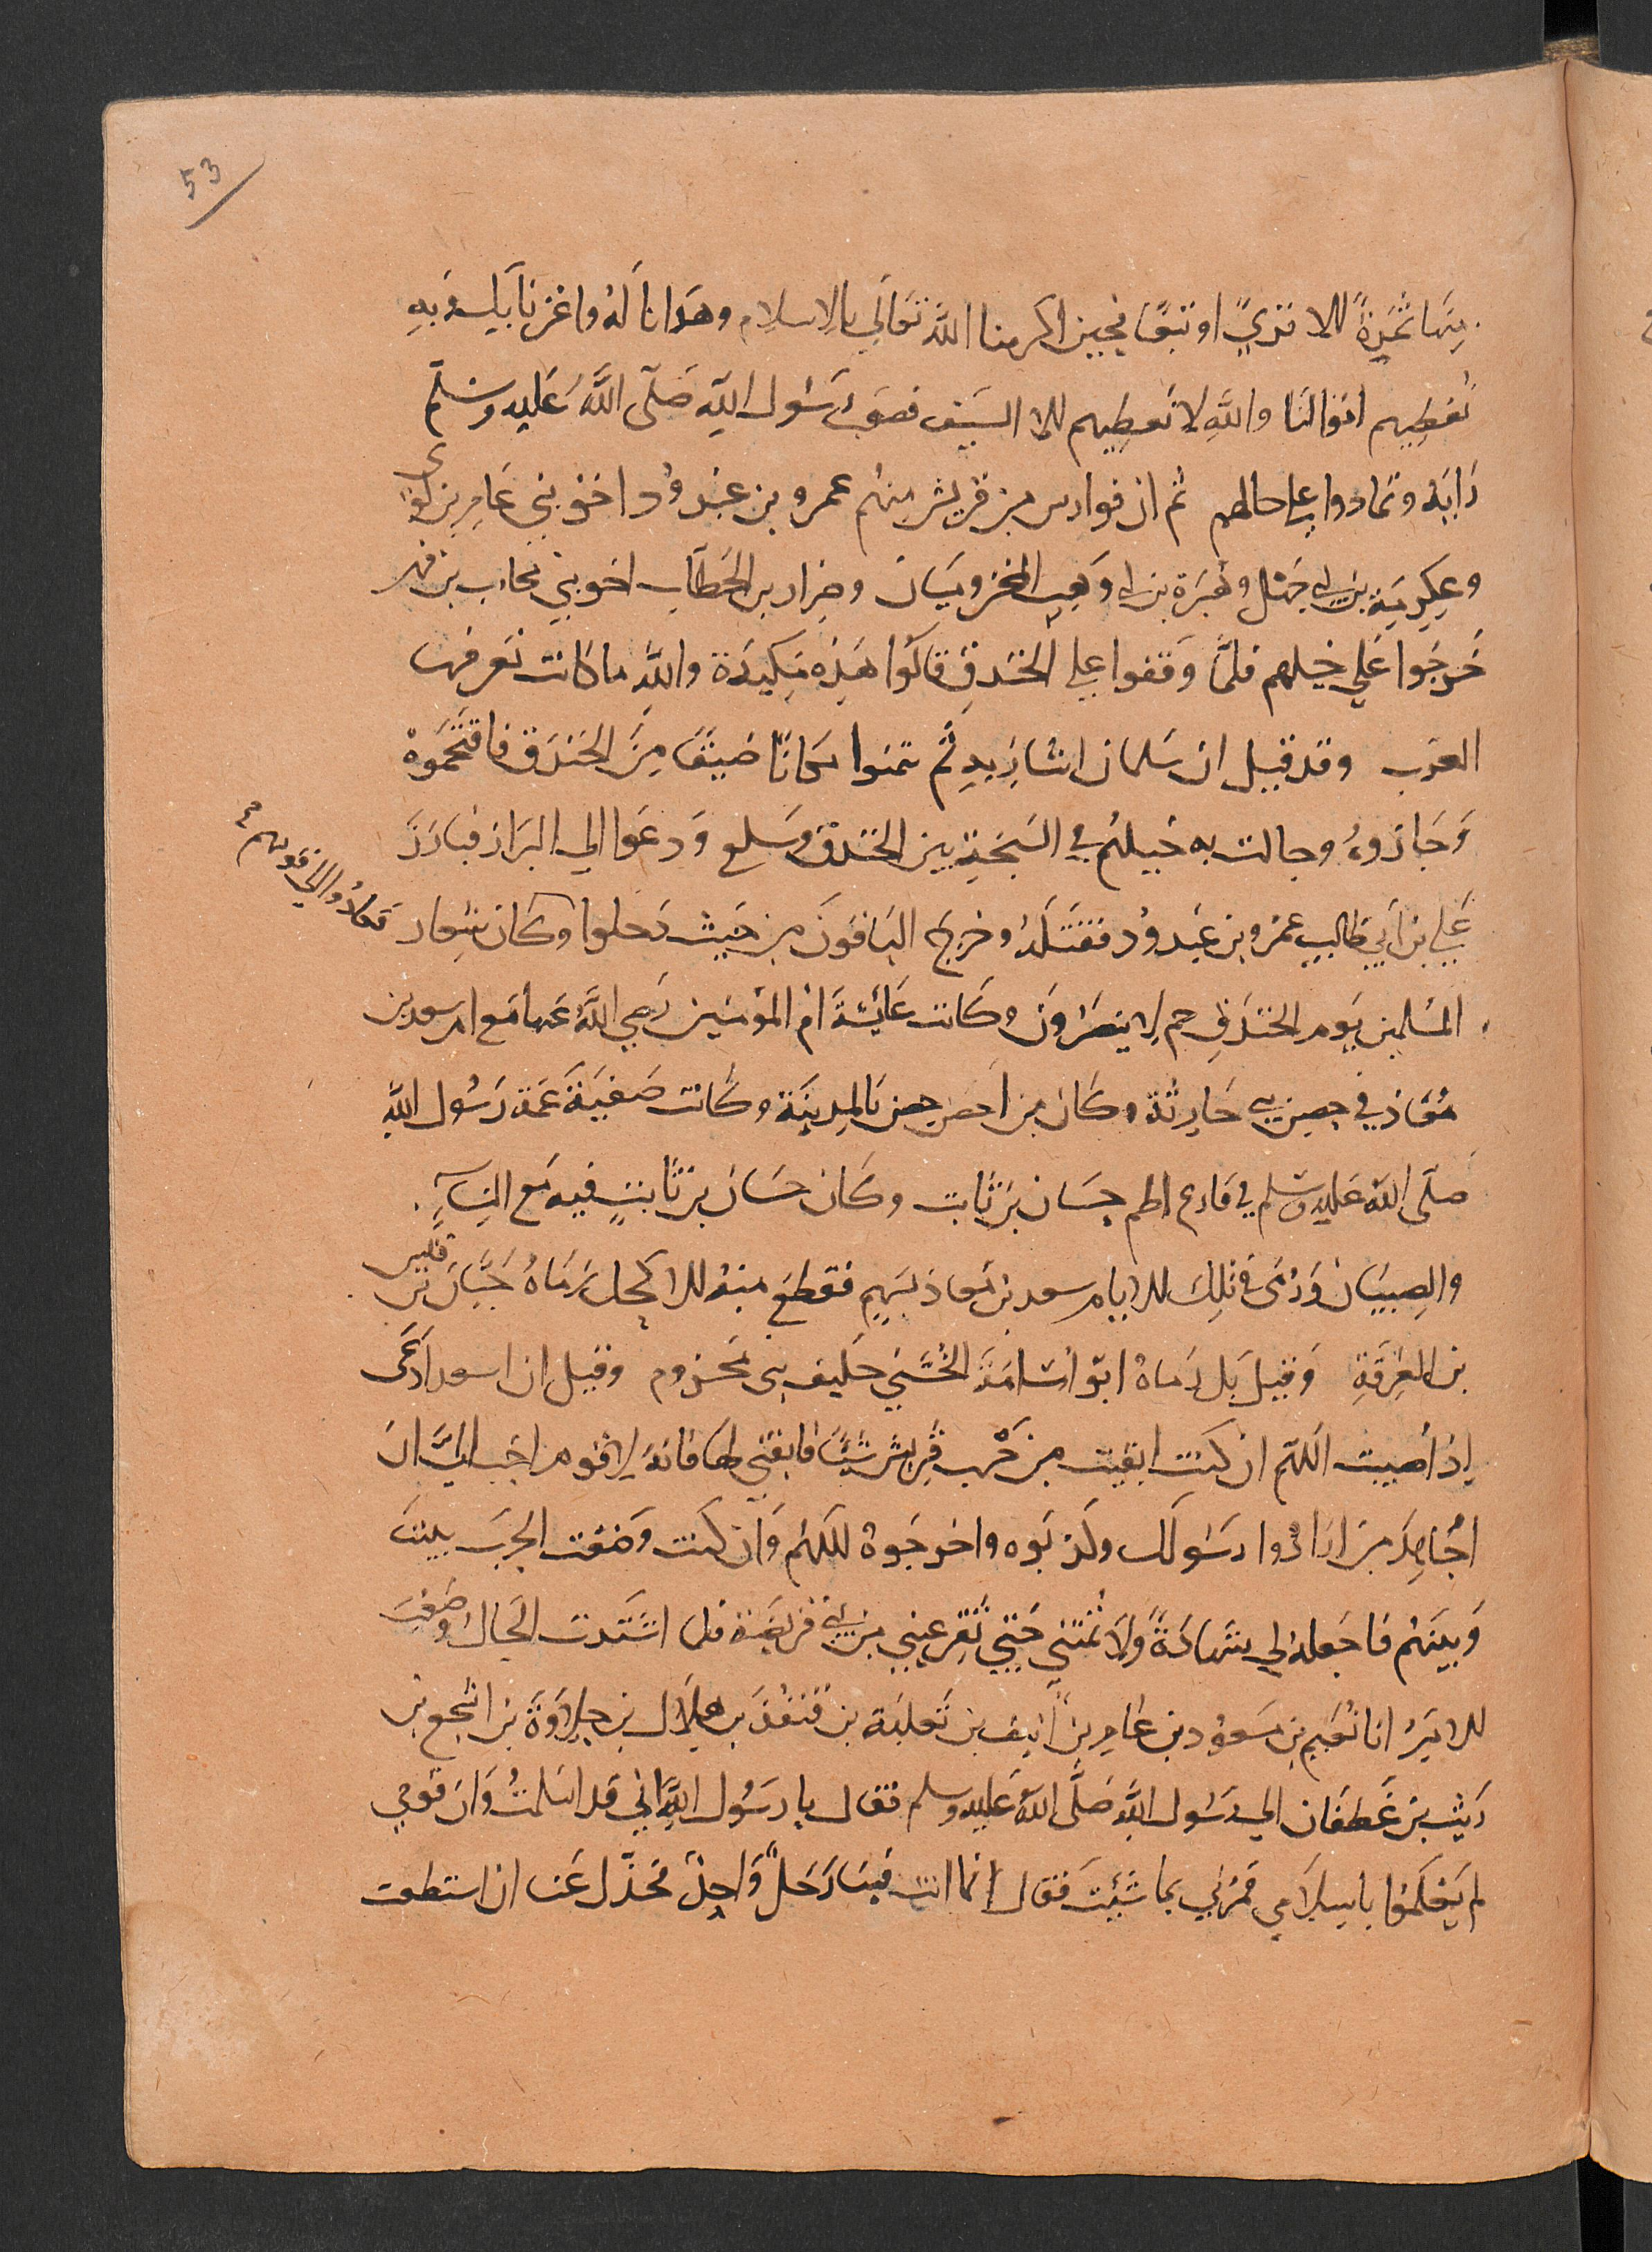 53
منها ثمرة الا قري او بيعا فحين اكرمنا الله تعالي بالاسلام وهدانا له واعزنا بك وبه
نعطيهم اموالنا والله لا نعطيهم الا السيف فصوب رسول الله صلى الله عليه وسلم
رايه وتمادوا علي حالهم ثم ان فوارس من قريش منهم عمرو بن عبد ود اخو بني عامر بن لوي
وعكرمة بن ابي جهل وهبيرة بن ابي وهب المخزوميان وضرار بن الخطاب اخو بني محارب بن فهر
خرجوا علي خيلهم فلما وقفوا علي الخندق قالوا هذه مكيدة والله ما كانت تعرفها
العرب وقد قيل ان سلمان اشار به ثم تيمموا مكانا ضيقا من الخندق فاقتحموه
وجازوه وجالت بهم خيلهم في السبخة بين الخندق وسلع ودعوا الي البراز فبارز
علي بن ابي طالب عمرو بن عبد ود فقتله وخرج الباقون من حيث دخلوا وكان شعار
فعادوا الي قومهم
المسلمين يوم الخندق حم لا ينصرون وكانت عايشة ام المومنين رضي الله عنها مع ام سعد بن
معاذ في حصن بني حارثة وكان من احصن حصن بالمدينة وكانت صفية عمة رسول الله
صلى الله عليه وسلم في فارع اطم حسان بن ثابت وكان حسان بن ثابت فيه مع النساء
والصبيان ورمى في تلك الايام سعد بن معاذ بسهم فقطع منه الاكحل رماه حبان بن قيس
بن العرقة وقيل بل رماه ابو اسامة الجشمي حليف بني مخزوم وقيل ان سعد ادعى
اذ اصيب اللهم ان كنت ابقيت من حرب قريش شيئا فابقني لها فانه لا قوم احب الي ان
اجاهد من اذوا رسولك وكذبوه واخرجوه اللهم وان كنت وضعت الحرب بيننا
وبينهم فاجعله لي شهادة ولا تمتني حتى تقر عيني من بني قريضة فلما اشتدت الحال وصعبت
الامر اتا نعيم بن مسعود بن عامر بن انيف بن ثعلبة بن قنفذ بن هلال بن خلاوة بن اشجع بن
ريث بن غطفان الى رسول الله صلى الله عليه وسلم فقال يا رسول الله اني قد اسلمت وان قومي
لم يعلموا باسلامي فمرني بما شيت فقال انما انت فينا رجل واحد فخذل عنا ان استطعت